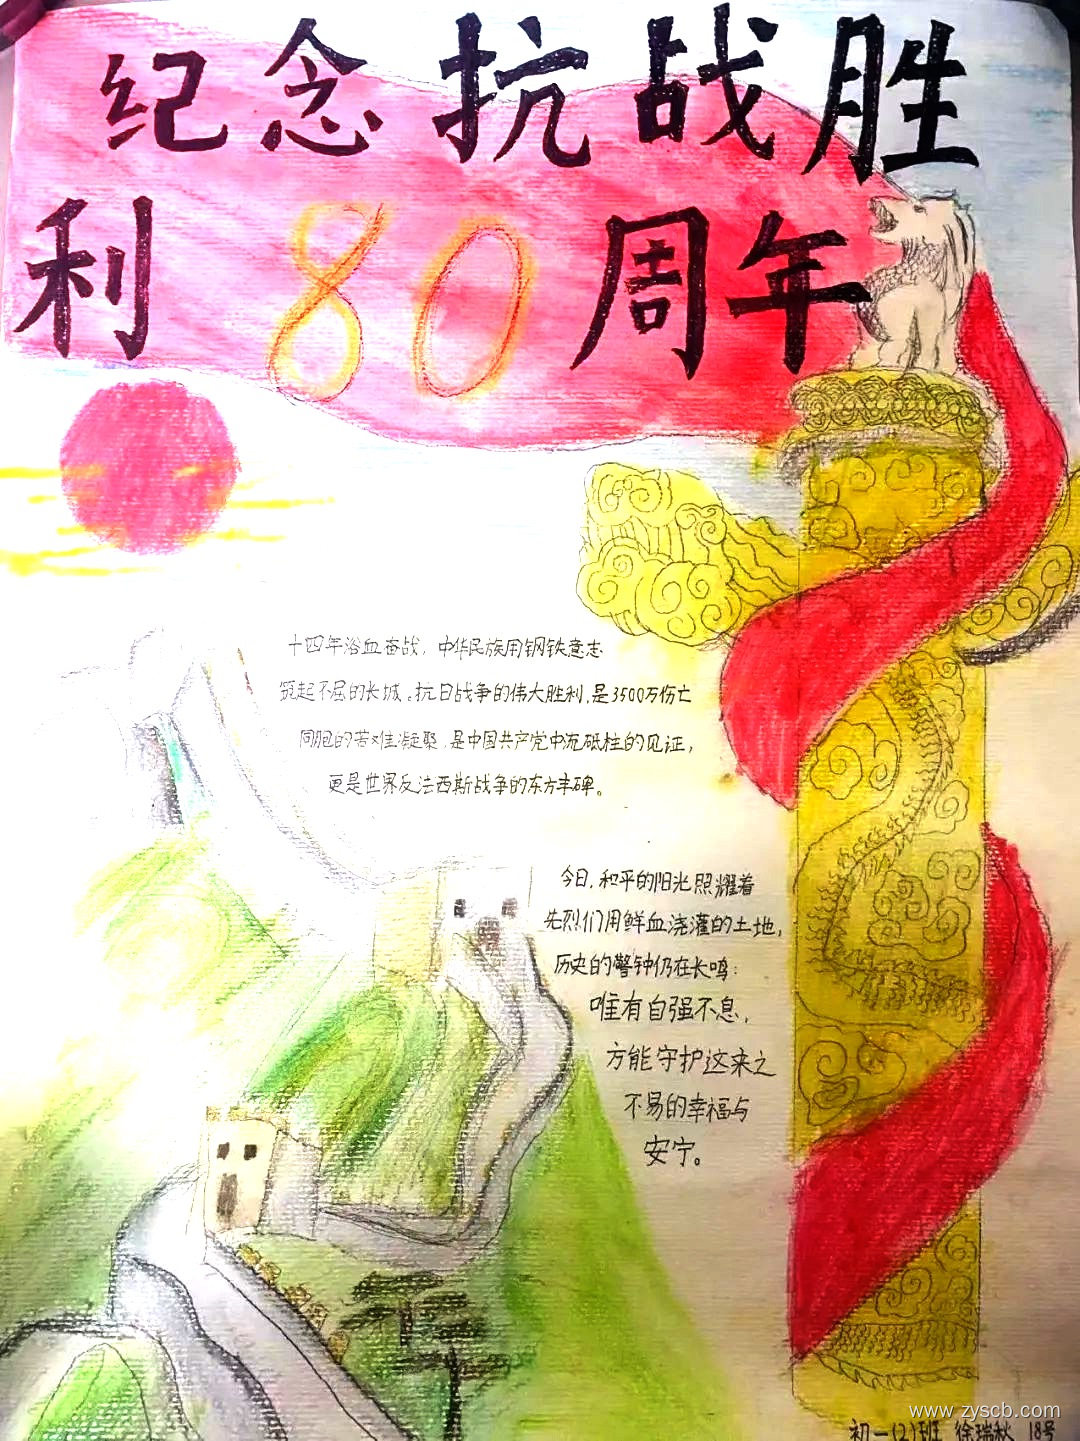 纪念抗战胜
利80周年
十四年浴血奋战，中华民族用钢铁意志
筑起不屈的长城。抗日战争的伟大胜利，是3500万伤亡
同胞的苦难凝聚，是中国共产党中流砥柱的见证，
更是世界反法西斯战争的东方丰碑。
今日，和平的阳光照耀着
先烈们用鲜血浇灌的土地，
历史的警钟仍在长鸣：
唯有自强不息，
方能守护这来之
不易的幸福与
安宁。
www.zyscb.com
初一(2)班 徐瑞秋 18号